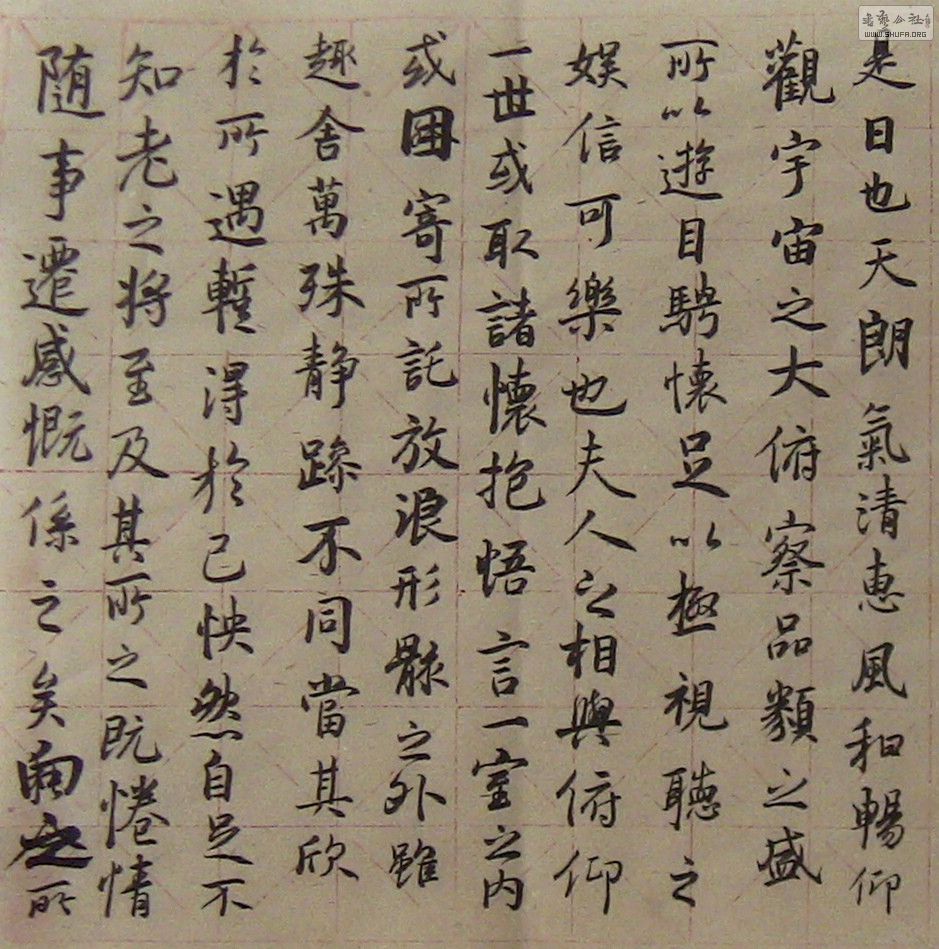 是日也天朗氣清惠風和暢仰
觀宇宙之大俯察品類之盛
所以遊目騁懷足以極視聽之
娛信可樂也夫人之相與俯仰
一世或取諸懷抱悟言一室之內
或因寄所託放浪形骸之外雖
趣舍萬殊静躁不同當其欣
於所遇暫得於己怏然自足不
知老之將至及其所之既惓情
随事遷感慨係之矣向之所
書藝公社
WWW.SHUFA.ORG